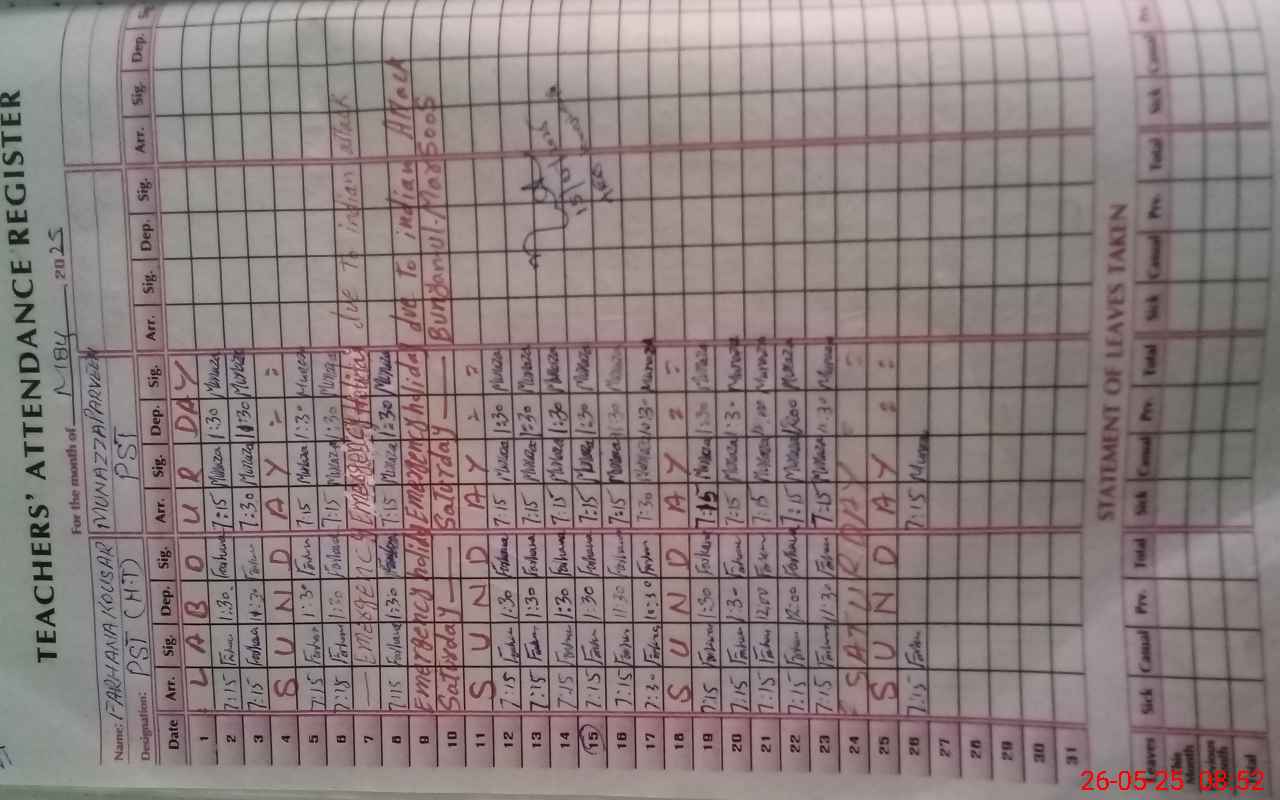 TEACHERS' ATTENDANCE REGISTER
For the month of MAY 2025
Name: FARHANA KOUSAR MUNAZZA PARVEEN
Designation: PST (H.T) PST
Date Arr. Sig. Dep. Sig. Arr. Sig. Dep. Sig. Arr. Sig. Dep. Sig. Arr. Sig. Dep.
1 L A B O U R DAY
2 7:15 Farhana 1:30 Farhana 7:15 Munaza 1:30 Munaza
3 7:15 Farhana Farhana 7:30 Munaza 1:30 Munaza
4 S U N D A Y = =
5 7:15 Farhana 1:30 Farhana 7:15 Munaza 1:30 Munaza
6 7:15 Farhana 1:30 Farhana 7:15 Munaza 1:30 Munaza
7 EMERGENCY due To indian attack
8 7:15 Farhana 1:30 Farhana 7:15 Munaza 1:30 Munaza
9 Emergency holiday Emergency holiday due To indian Attack
10 Saturday Saturday
11 S U N D A Y = =
12 7:15 Farhana 1:30 Farhana 7:15 Munaza 1:30 Munaza
13 7:15 Farhana 1:30 Farhana 7:15 Munaza 1:30 Munaza
14 7:15 Farhana 1:30 Farhana 7:15 Munaza 1:30 Munaza
15 7:15 Farhana 1:30 Farhana 7:15 Munaza 1:30 Munaza
16 7:15 Farhana 11:30 Farhana 7:15 Munaza 11:30 Munaza
17 7:30 Farhana 10:30 Farhana 7:30 Munaza 10:30 Munaza
18 S U N D A Y = =
19 7:15 Farhana 1:30 Farhana 7:15 Munaza 1:30 Munaza
20 7:15 Farhana 1:30 Farhana 7:15 Munaza 1:30 Munaza
21 7:15 Farhana 12:00 Farhana 7:15 Munaza Munaza
22 7:15 Farhana 12:00 Farhana 7:15 Munaza 12:00 Munaza
23 7:15 Farhana 11:30 Farhana 7:15 Munaza 11:30 Munaza
24 S A T U R D A Y = =
25 S U N D A Y = =
26 7:15 Farhana 7:15 Munaza
27
28
29
30
31
STATEMENT OF LEAVES TAKEN
Leaves Sick Casual Prv. Total Sick Casual Prv. Total Sick Casual Prv. Total Sick Casual Prv.
This Month
Previous Month
Total
26-05-25 08:52